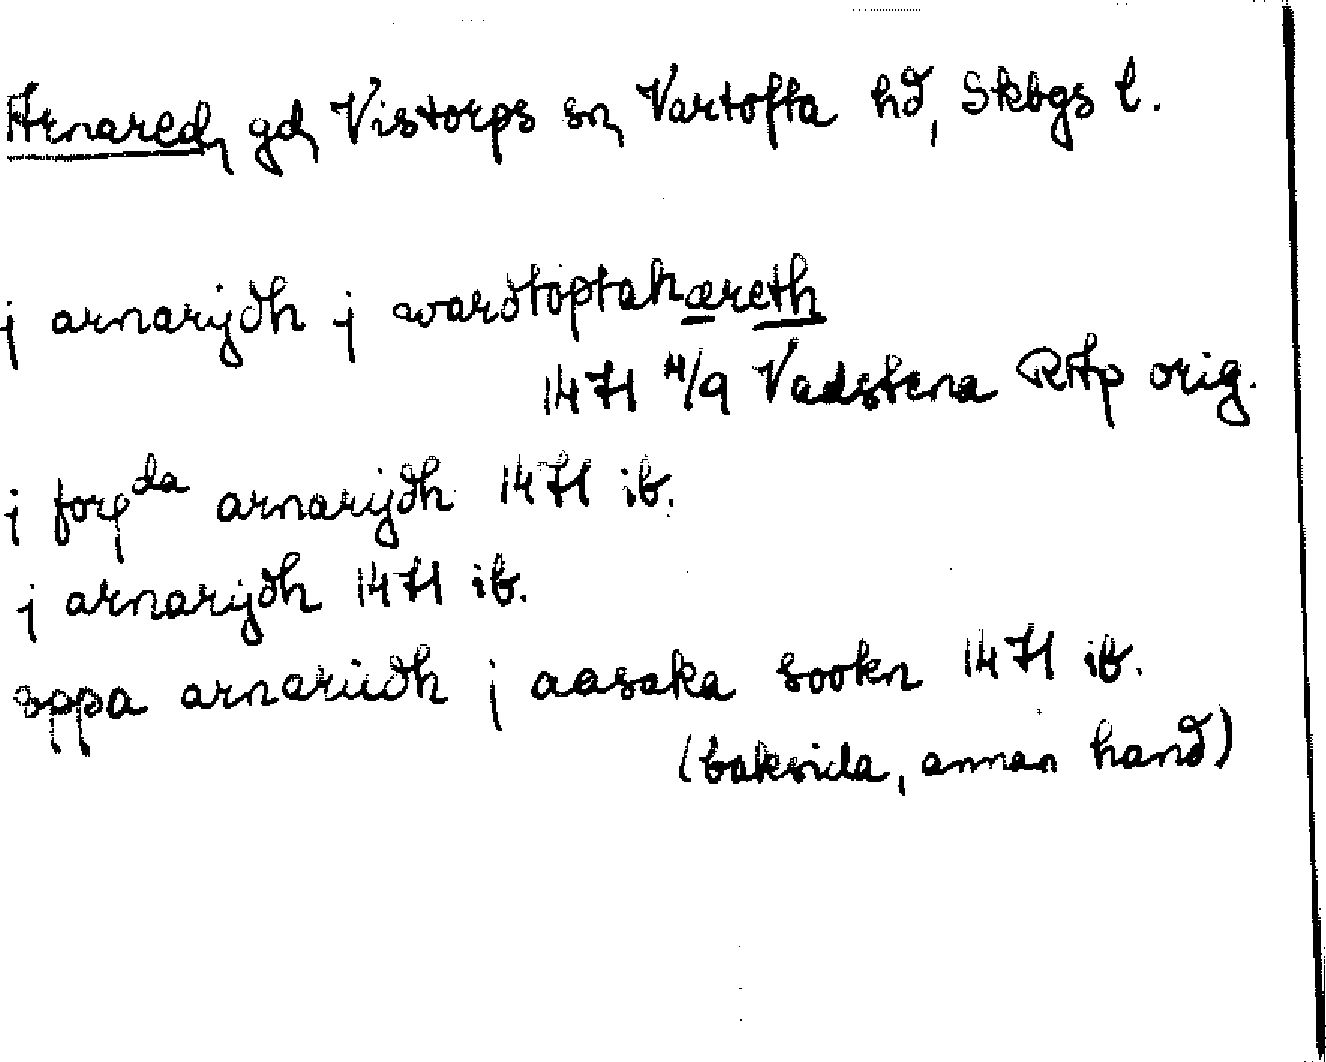 Arnared, gd, Vistorps sn, Vartofta hd, Skbgs l.
j arnarijdh j wardtoptahæreth
1471 11/9 Vadstena RAp orig.
j for da arnarijdh 1471 ib.
j arnarijdh 1471 ib.
oppa arnariidh j aasaka sookn 1471 ib.
(baksida, annan hand)